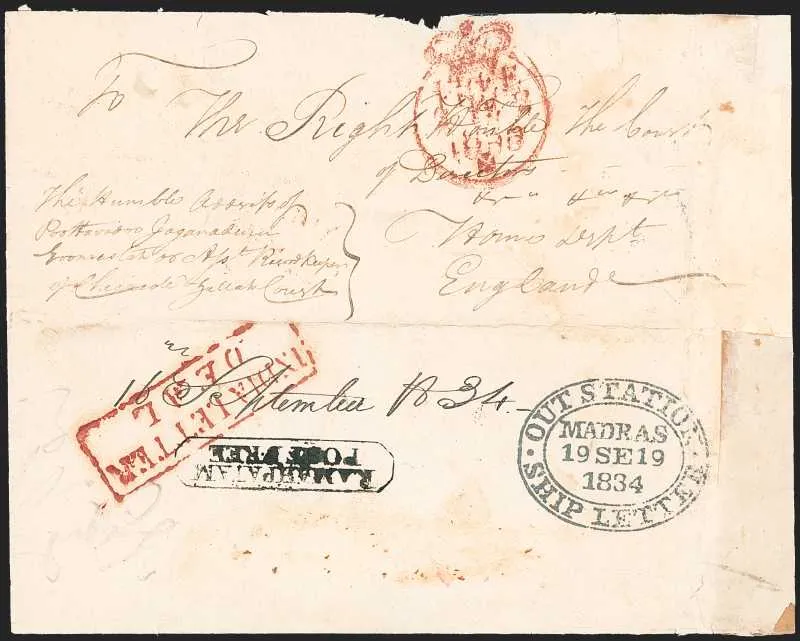 To
The Right Honble The Court
of Directors
Home Dept
England
The Humble Address of
Jaganadum
Asst Record keeper
of Chicacole Zillah Court
16 September 1834
INDIA LETTER
DEAL
RAMAPATAM
POST FREE
OUT STATION
MADRAS
19 SE 19
1834
SHIP LETTER